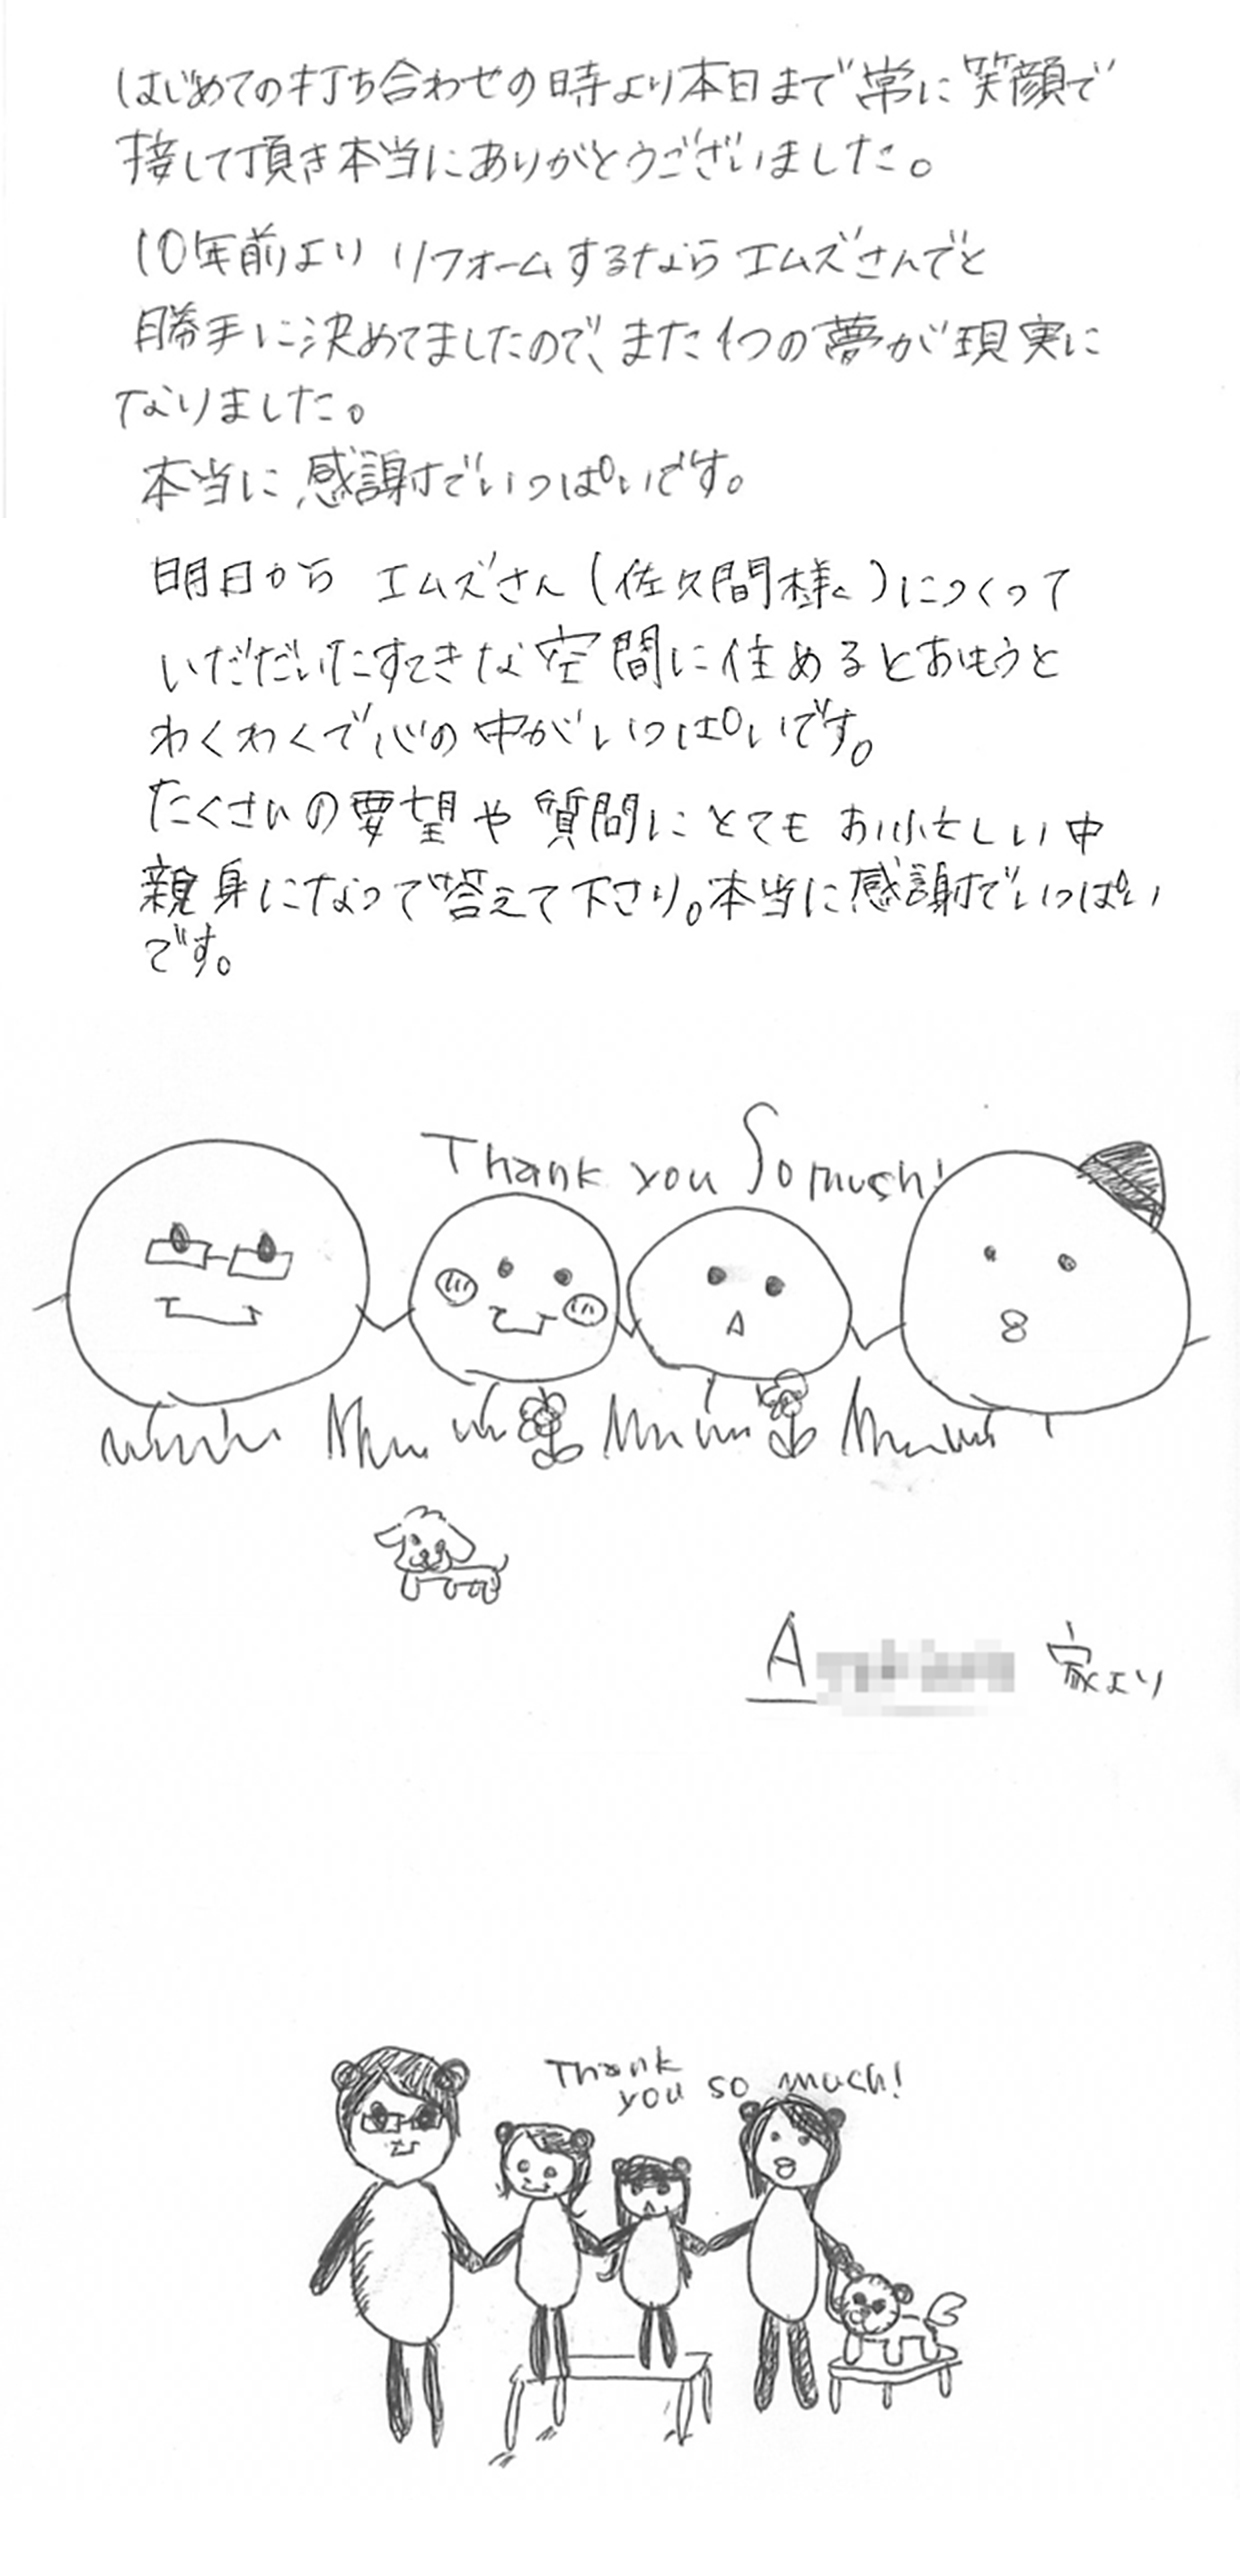 はじめての打ち合わせの時より本日まで常に笑顔で
接して頂き本当にありがとうございました。
10年前より リフォームするなら エムズさんでと
勝手に決めてましたので、また1つの夢が現実に
なりました。
本当に感謝でいっぱいです。
明日から エムズさん(佐久間様)につくって
いただいたすてきな空間に住めるとおもうと
わくわくで心の中がいっぱいです。
たくさんの要望や質問にとても お忙しい中
親身になって答えて下さり。本当に感謝でいっぱい
です。
Thank you So much!
A 家より
Thank
you so much!